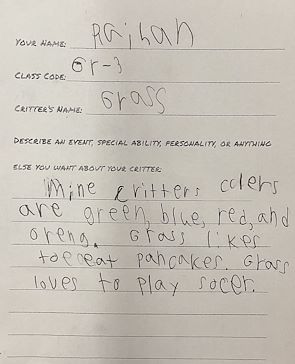 YOUR NAME: Raihan
CLASS CODE: Gr-3
CRITTER'S NAME: Grass
DESCRIBE AN EVENT, SPECIAL ABILITY, PERSONALITY, OR ANYTHING
ELSE YOU WANT ABOUT YOUR CRITTER:
Mine critters colers
are green, blue, red, and
oreng. Grass likes
to eat pancakes. Grass
loves to play socer.